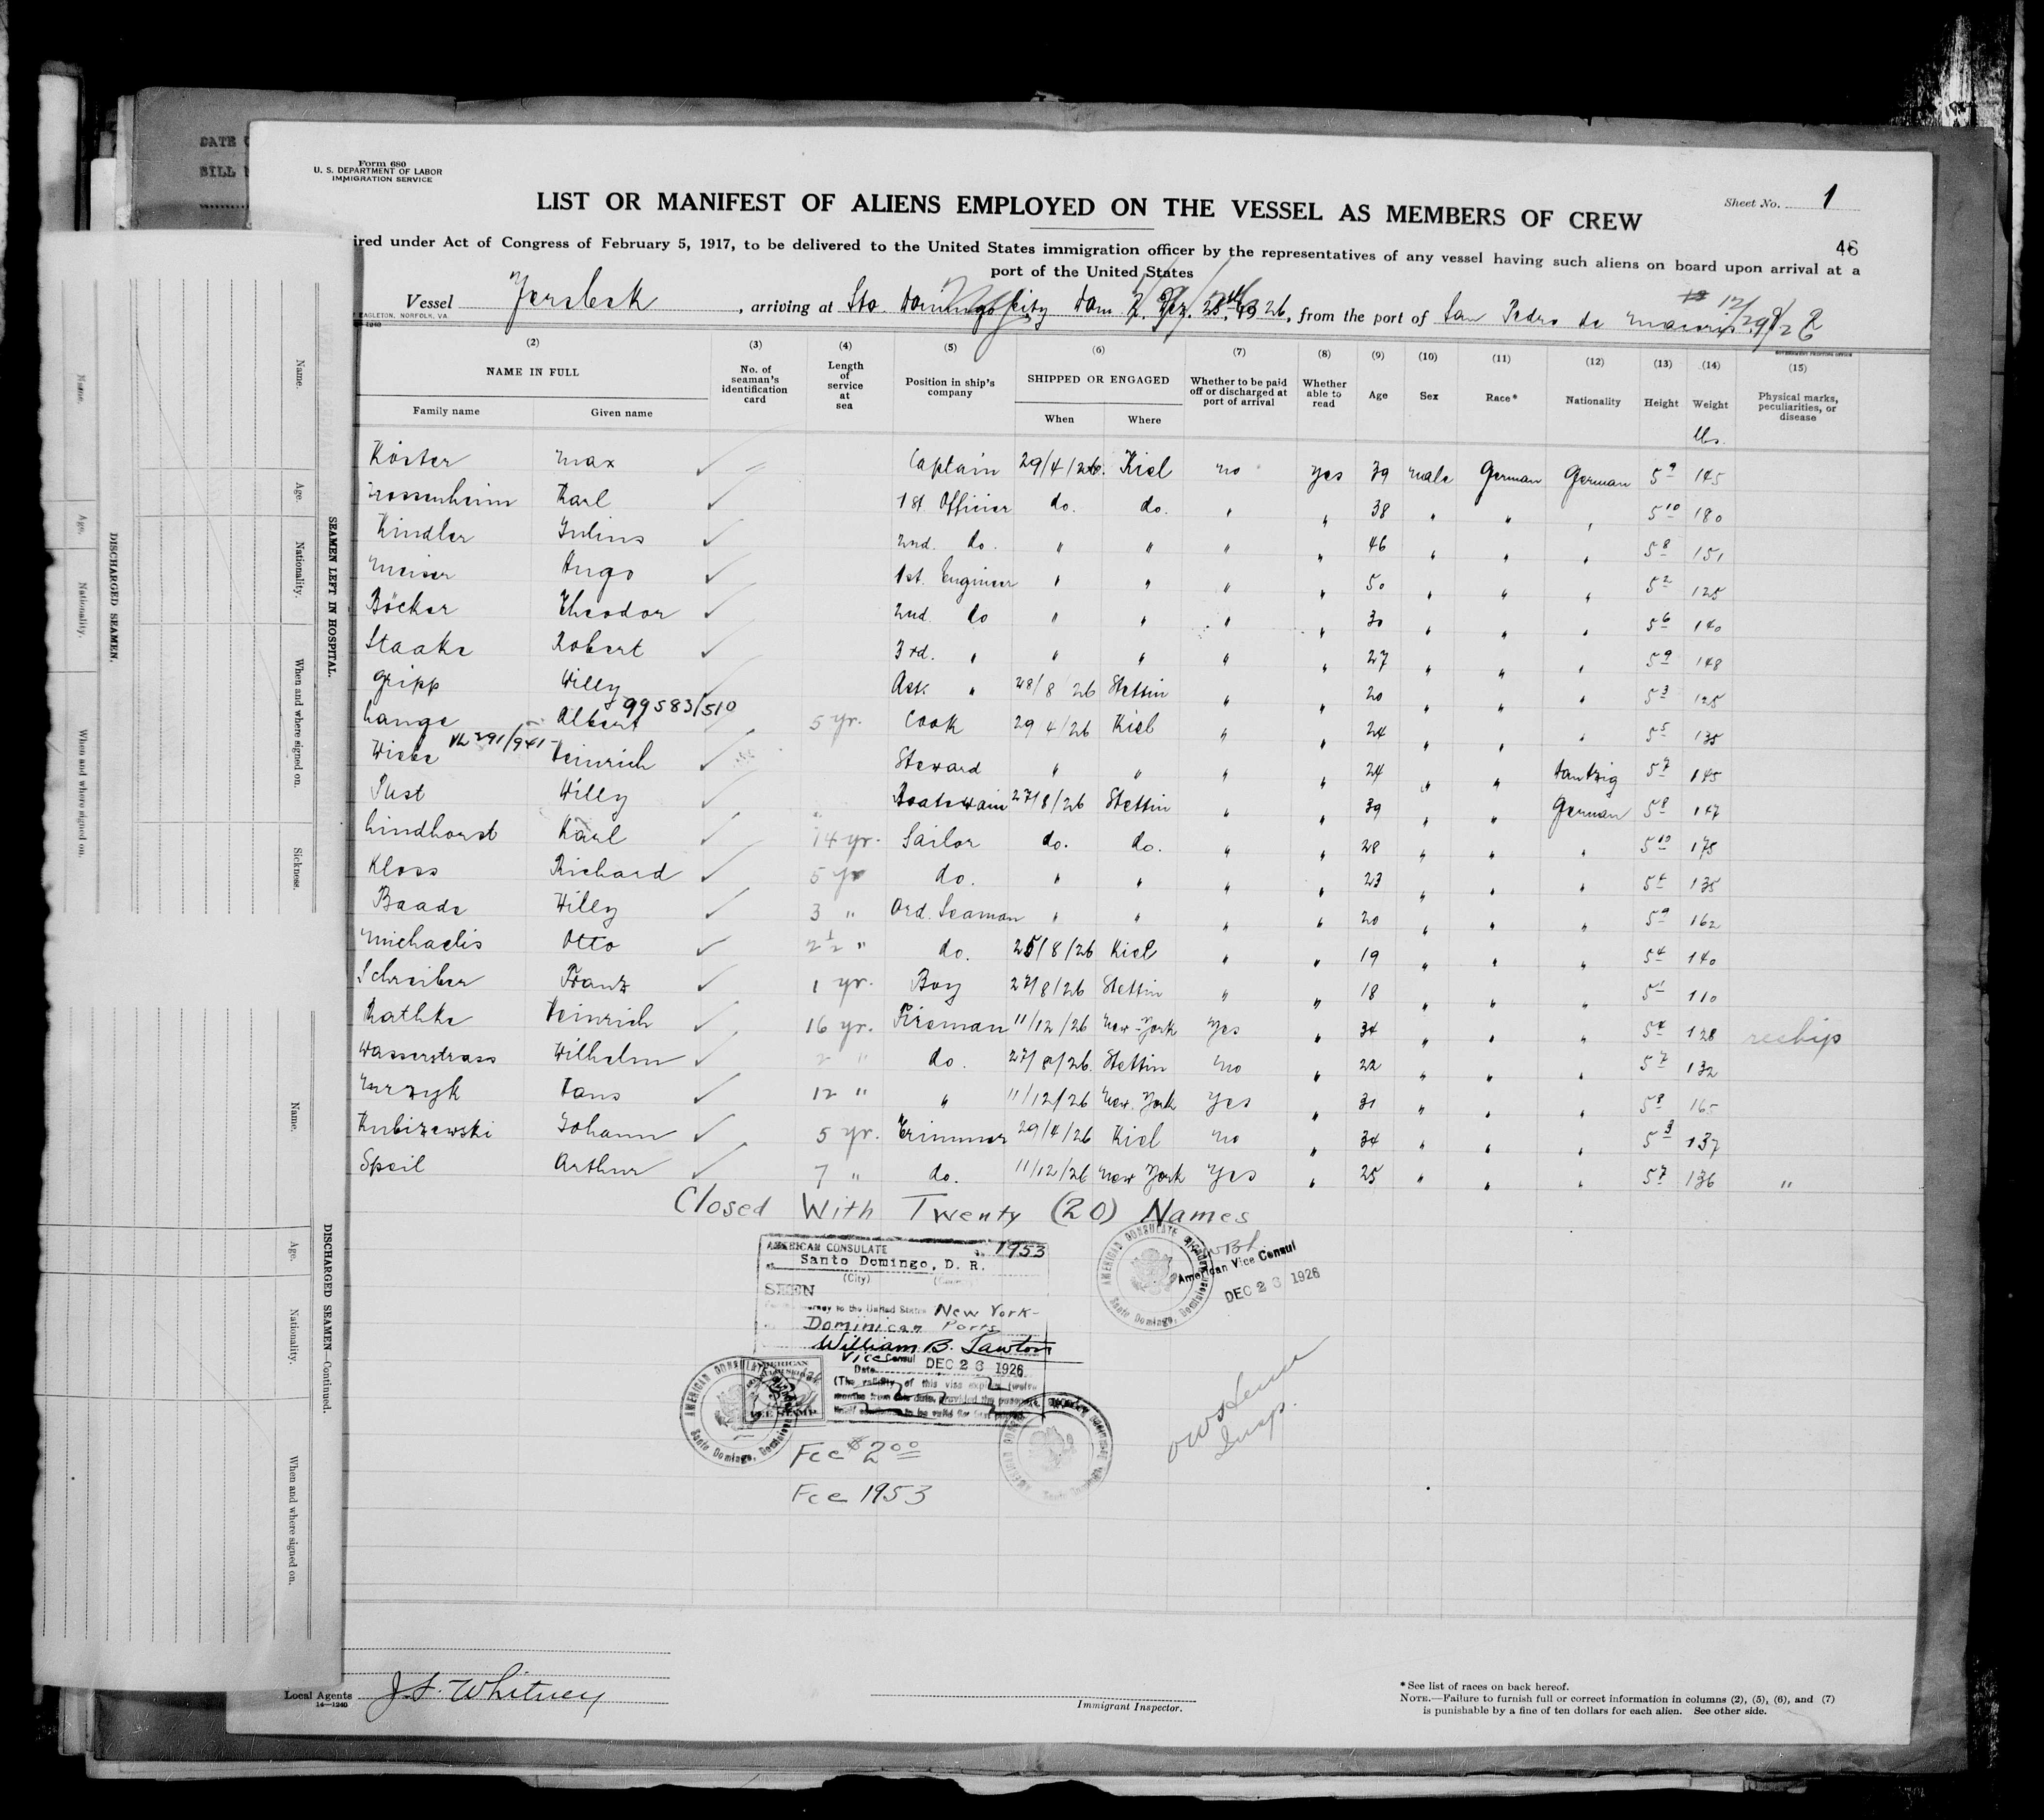 DATE
BILL
Form 680
U. S. DEPARTMENT OF LABOR
IMMIGRATION SERVICE
LIST OR MANIFEST OF ALIENS EMPLOYED ON THE VESSEL AS MEMBERS OF CREW
Sheet No. 1
46
ired under Act of Congress of February 5, 1917, to be delivered to the United States immigration officer by the representatives of any vessel having such aliens on board upon arrival at a
port of the United States
Vessel Jersbek, arriving at Sto. Domingo City Dom. R. Dez. 1926, from the port of San Pedro de Macoris 12/29/26
EAGLETON, NORFOLK, VA.
14—1240
GOVERNMENT PRINTING OFFICE
(2) (3) (4) (5) (6) (7) (8) (9) (10) (11) (12) (13) (14) (15)
NAME IN FULL No. of seaman's identification card Length of service at sea Position in ship's company SHIPPED OR ENGAGED Whether to be paid off or discharged at port of arrival Whether able to read Age Sex Race* Nationality Height Weight Physical marks, peculiarities, or disease
Family name Given name When Where
lbs.
Köster Max ✓ Captain 29/4/26. Kiel no yes 39 male German German 5 9 145
Karl ✓ 1st. Officier do. do. " " 38 " " " 5 10 180
Kindler Julius ✓ 2nd. do. " " " " 46 " " " 5 8 151
Meiser Hugo ✓ 1st. Engineer " " " " 50 " " " 5 2 125
Böcker Theodor ✓ 2nd do " " " " 30 " " " 5 6 140
Staake Robert ✓ 3rd. " " " " " 27 " " " 5 9 148
Gripp Willy ✓ Ast. " 28/8/26 Stettin " " 20 " " " 5 3 125
99583/510
Lange Albert ✓ 5 yr. Cook 29/4/26 Kiel " " 24 " " " 5 5 135
Wiebe Heinrich ✓ Steward " " " " 24 " " Dantzig 5 7 145
Pust Willy ✓ Boatswain 27/8/26 Stettin " " 39 " " German 5 8 147
Lindhorst Karl ✓ 14 yr. Sailor do. do. " " 28 " " " 5 10 175
Kloss Richard ✓ 5 yr do. " " " " 23 " " " 135
Baade Willy ✓ 3 " Ord. Seaman " " " " 20 " " " 5 9 162
Michaelis Otto ✓ 2½ " do. 25/8/26 Kiel " " 19 " " " 5 4 140
Schreiber Franz ✓ 1 yr. Boy 27/8/26 Stettin " " 18 " " " 5 1 110
Rathke Heinrich ✓ 16 yr. Fireman 11/12/26 New-York Yes " 34 " " " 5 4 128 reship
Wasserstrass Wilhelm ✓ 2 " do. 27/8/26. Stettin no " 22 " " " 5 7 132
Hans ✓ 12 " " 11/12/26 New. York Yes " 31 " " " 5 8 165
Kubizewski Johann ✓ 5 yr. Trimmer 29/4/26 Kiel no " 34 " " " 5 3 137
Speil Arthur ✓ 7 " do. 11/12/26 New York Yes " 25 " " " 5 7 136 "
Closed With Twenty (20) Names
AMERICAN CONSULATE 1953
Santo Domingo, D. R.
(City) (Country)
SEEN
journey to the United States New York-
Dominican Ports
William B. Lawton
Vice Consul DEC 23 1926
Date
(The validity of this visa expires twelve
months from this date, provided the passport
itself continues to be valid for that period.)
AMERICAN CONSULATE
Santo Domingo, Dominican
American Vice Consul
DEC 23 1926
AMERICAN CONSULATE
Santo Domingo, Dominican
AMERICAN
FEE STAMP
Fee $2.00
Fee 1953
Insp.
Local Agents J. S. Whitney
14—1240
Immigrant Inspector.
* See list of races on back hereof.
NOTE.—Failure to furnish full or correct information in columns (2), (5), (6), and (7)
is punishable by a fine of ten dollars for each alien. See other side.
SEAMEN LEFT IN HOSPITAL.
Name. Age. Nationality. When and where signed on. Sickness.
DISCHARGED SEAMEN.
Name. Age. Nationality. When and where signed on.
DISCHARGED SEAMEN—Continued.
Name. Age. Nationality. When and where signed on.